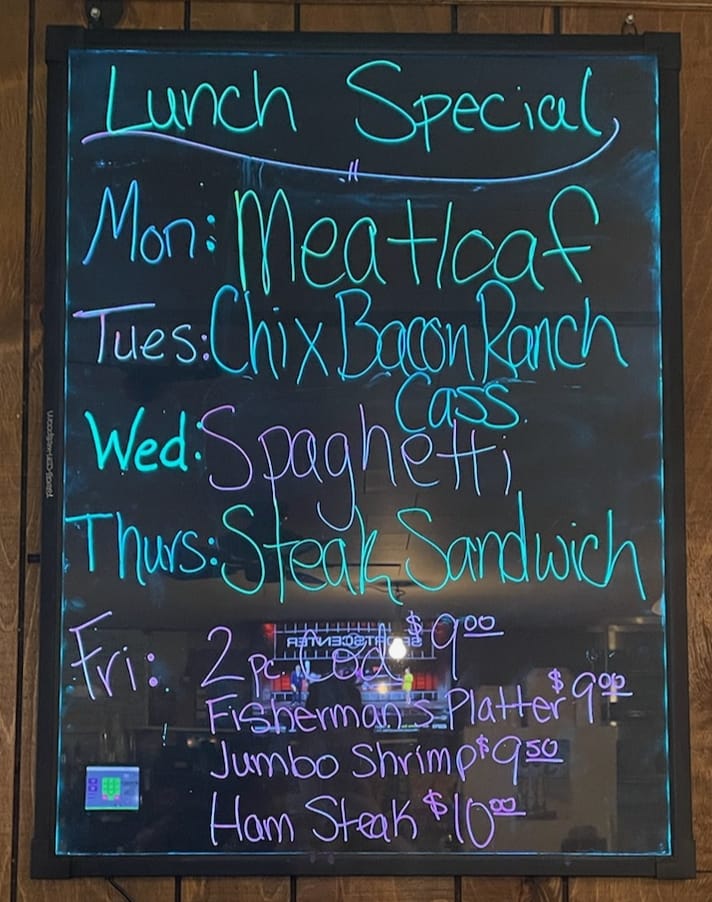 Lunch Special
Mon: Meatloaf
Tues: Chix Bacon Ranch
Cass.
Wed: Spaghetti
Thurs: Steak Sandwich
Fri: 2 pc. Cod $9.00
Fisherman's Platter $9.00
Jumbo Shrimp $9.50
Ham Steak $10.00
SPORTSCENTER